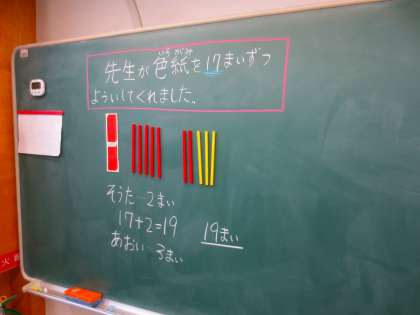 いろがみ
先生が色紙を17まいずつ
よういしてくれました。
そうた…2まい
17+2=19
19まい
あおい…3まい
火